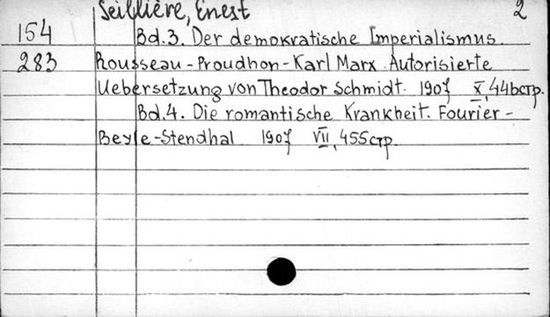 Seillière, Ernest 2
154 Bd.3. Der demokratische Imperialismus.
283 Rousseau - Proudhon - Karl Marx. Autorisierte
Uebersetzung von Theodor Schmidt. 1907 X, 44 bстр.
Bd.4. Die romantische Krankheit. Fourier -
Beyle-Stendhal 1907 VII, 455стр.